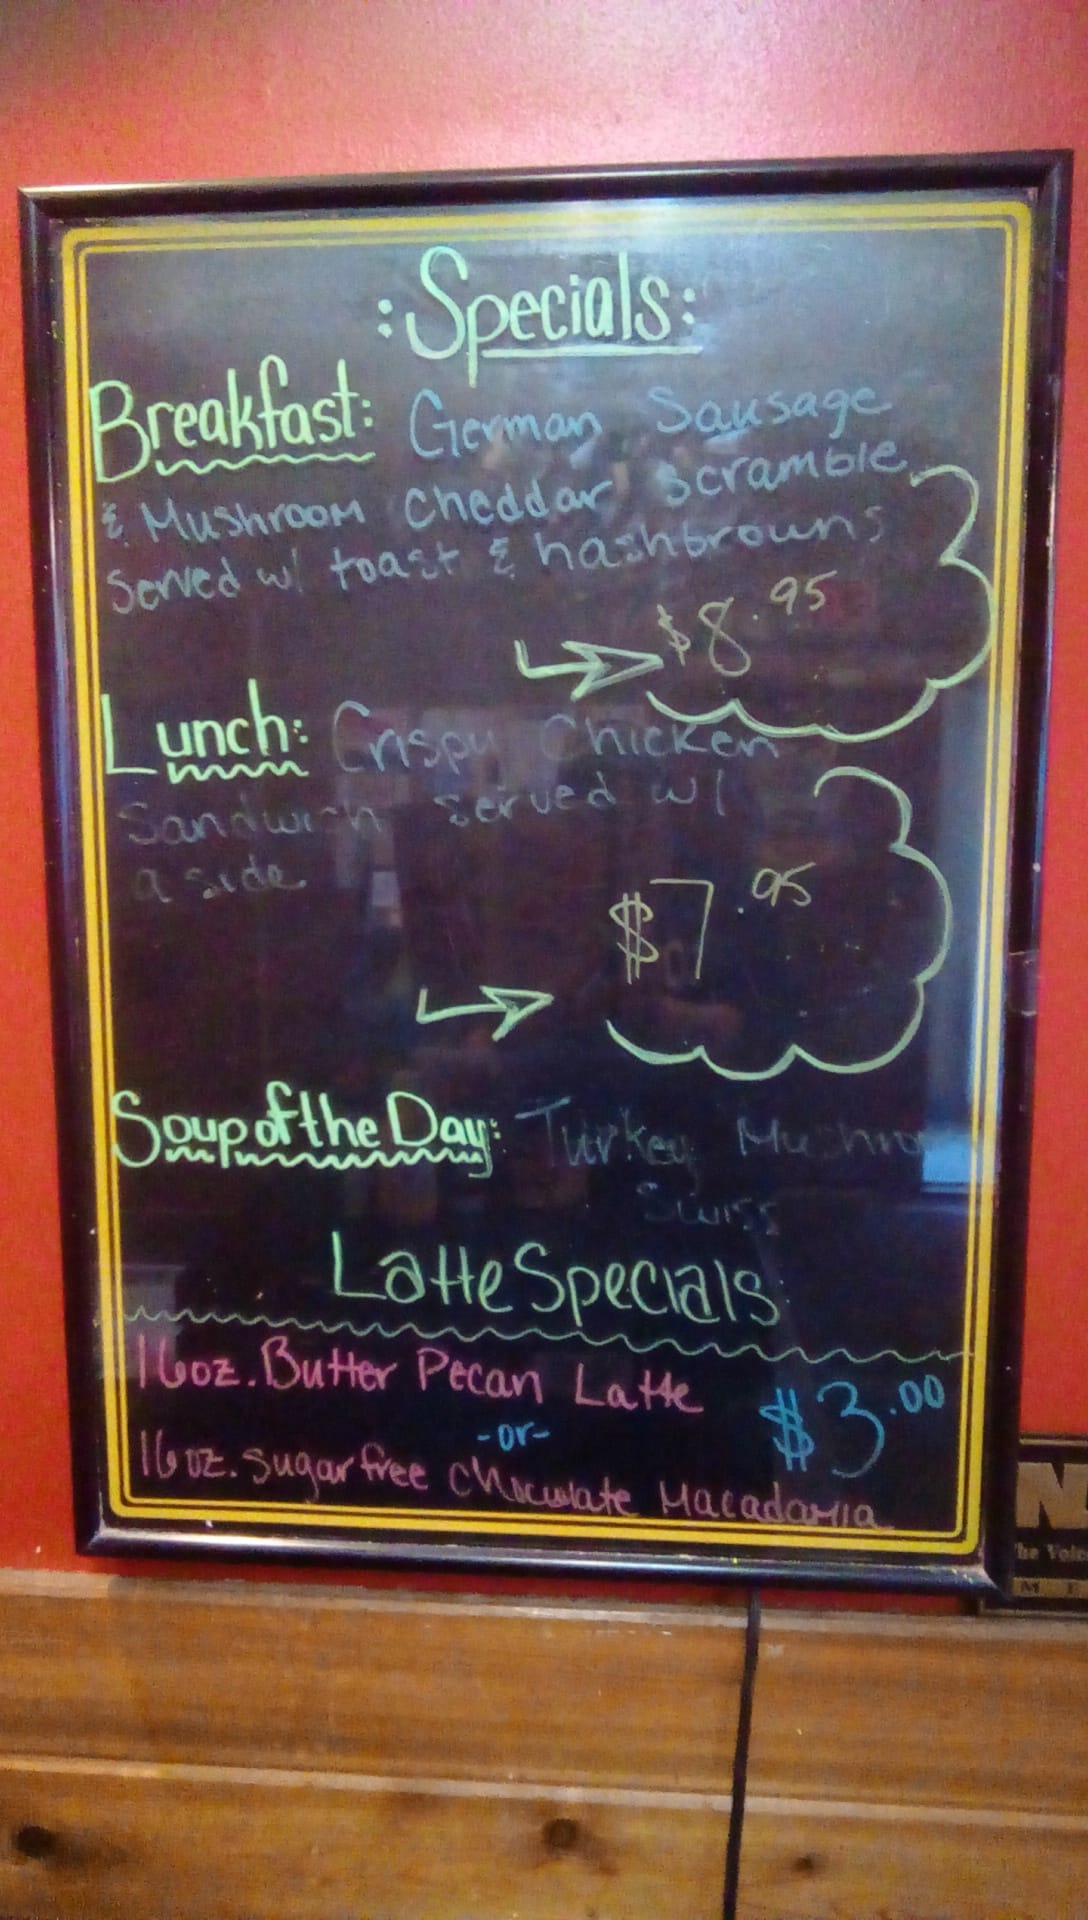 :Specials:
Breakfast: German Sausage
& Mushroom Cheddar scramble
Served w/ toast & hashbrowns
$8.95
Lunch: Crispy Chicken
Sandwich served w/
a side
$7.95
Soup of the Day: Turkey Mushroo
Swiss
Latte Specials
16oz. Butter Pecan Latte
$3.00
-or-
16oz. sugar free chocolate Macadamia
N
The Voic